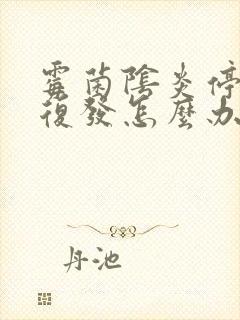 霉菌陰炎停
復發怎麼办
丹池